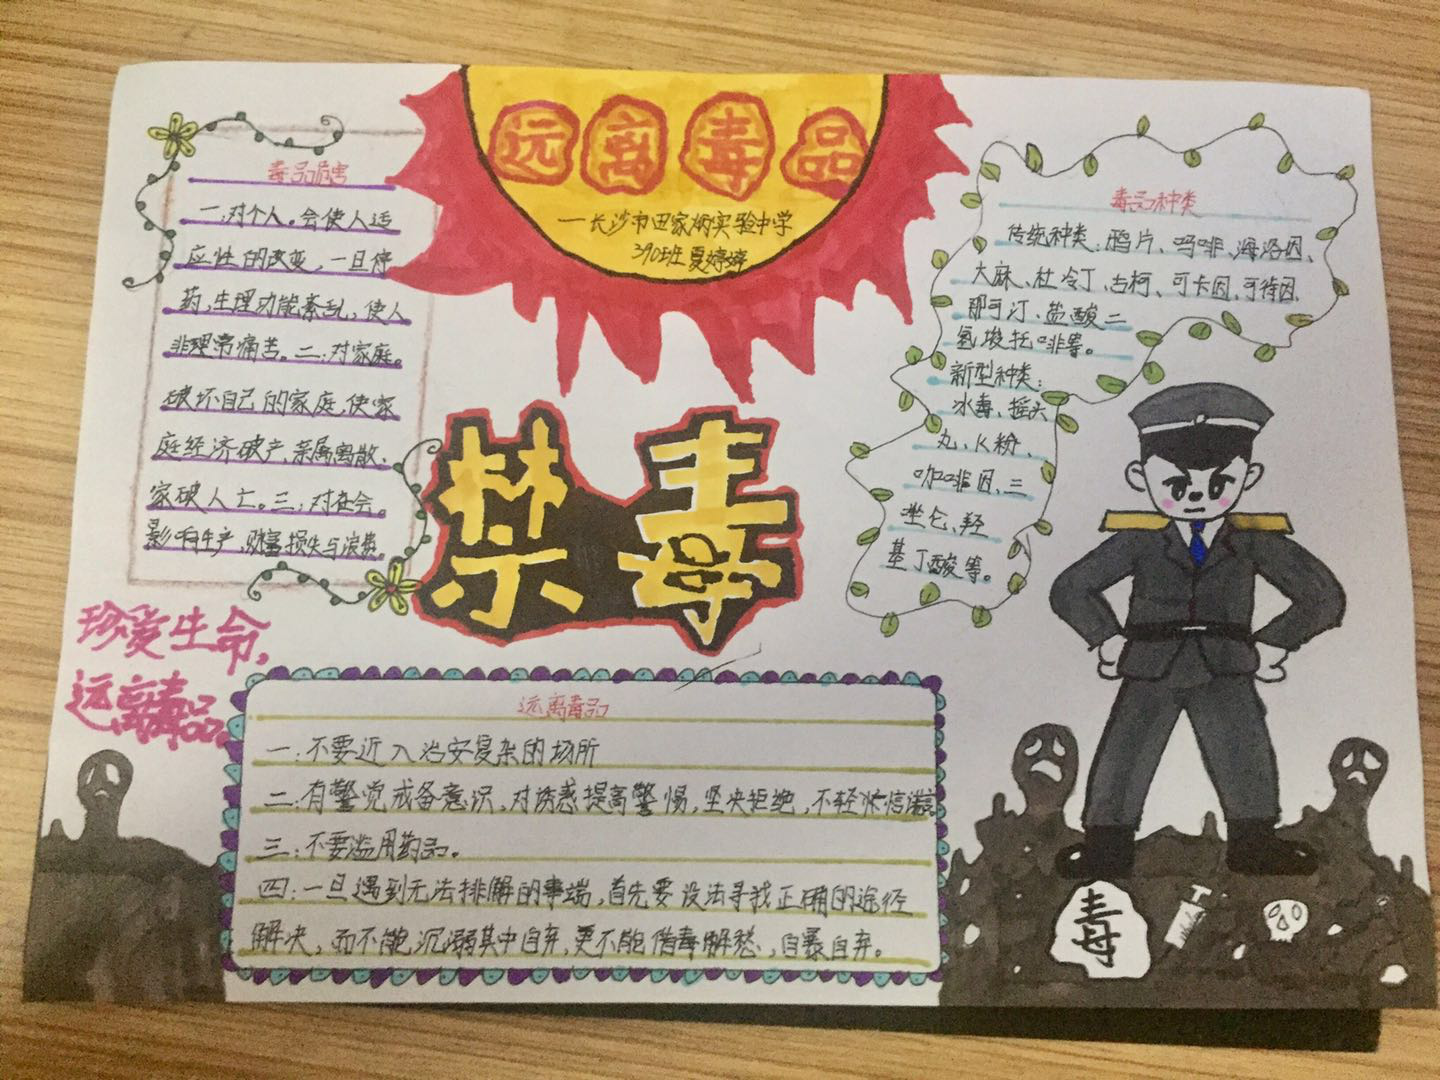 远离毒品
一长沙市田家炳实验中学
390班 夏婷婷
毒品危害
一.对个人。会使人适
应性的改变，一旦停
药，生理功能紊乱，使人
非理常痛苦。二：对家庭。
破坏自己的家庭，使家
庭经济破产、亲属离散、
家破人亡。三：对社会。
影响生产，财富损失与浪费。
毒品种类
传统种类：鸦片、吗啡、海洛因、
大麻、杜冷丁、古柯、可卡因、可待因、
那可汀、盐酸二
氢埃托啡等。
新型种类：
冰毒、摇头
丸、K粉、
咖啡因、三
坐仑、羟
基丁酸等。
禁毒
珍爱生命，
远离毒品。
远离毒品
一：不要近入治安复杂的场所
二：有警觉戒备意识，对诱惑提高警惕，坚决拒绝，不轻信谎言
三：不要滥用药品。
四：一旦遇到无法排解的事端，首先要设法寻找正确的途径
解决，而不能沉溺其中自弃，更不能借毒解愁，自暴自弃。
毒